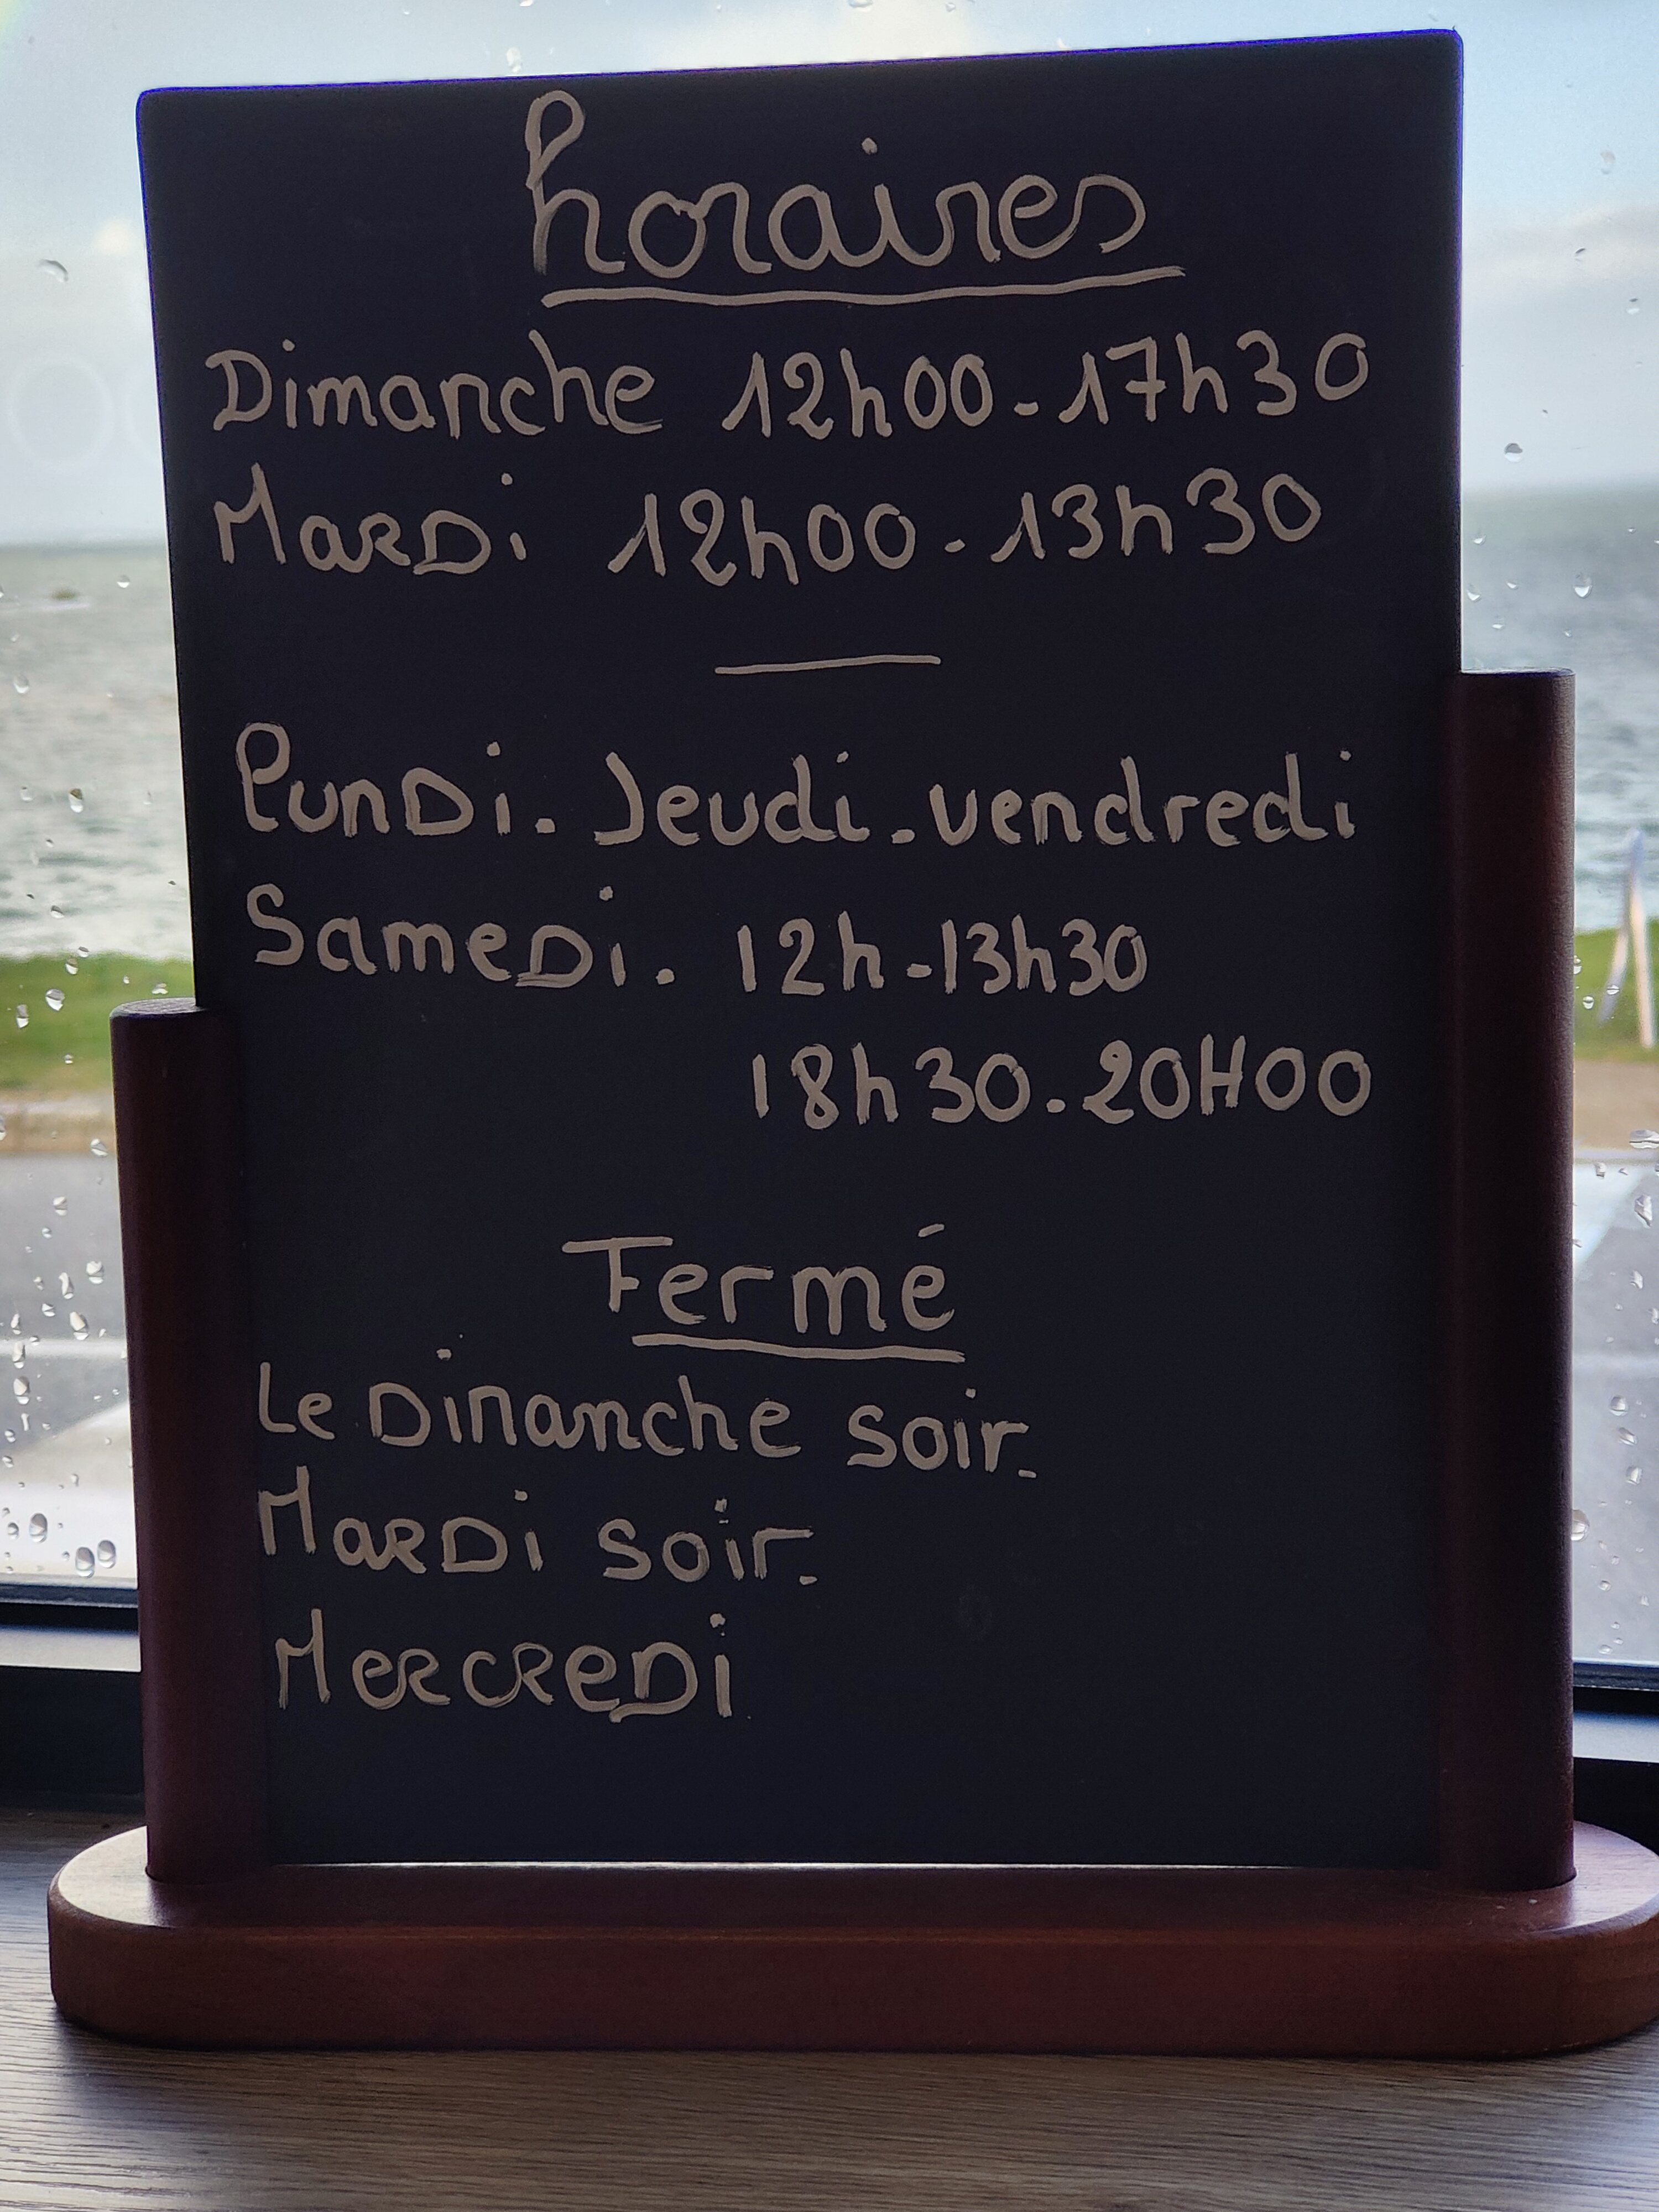 horaires
Dimanche 12h00-17h30
MarDi 12h00-13h30
LunDi. Jeudi. vendredi
SameDi. 12h-13h30
18h30.20H00
Fermé
Le Dinanche soir.
MarDi soir.
MercreDi